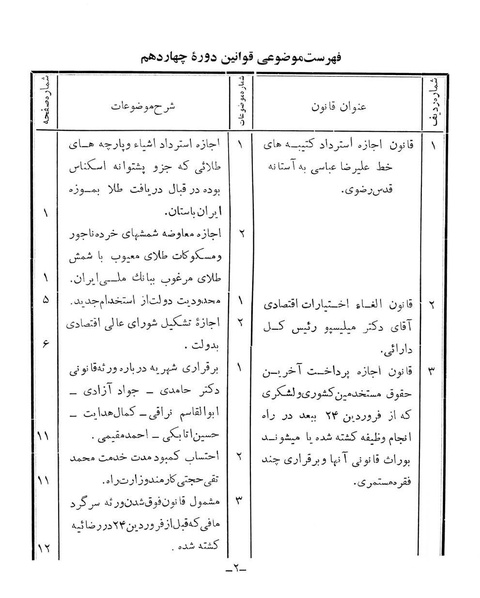 فهرست موضوعی قوانین دورهٔ چهاردهم
شماره ردیف
عنوان قانون
شماره موضوعات
شرح موضوعات
شماره صفحه
۱
قانون اجازه استرداد کتیبه های
خط علیرضا عباسی به آستانه
قدس رضوی.
۱
اجازه استرداد اشیاء و پارچه های
طلائی که جزو پشتوانه اسکناس
بوده در قبال دریافت طلا بموزه
ایران باستان.
۱
۲
اجازه معاوضه شمشهای خرده ناجور
ومسکوکات طلای معیوب با شمش
طلای مرغوب ببانك ملی ایران.
۱
۲
قانون الغاء اختیارات اقتصادی
آقای دکتر میلیسپو رئیس کل
دارائی.
۱
محدودیت دولت از استخدام جدید.
۵
۲
اجازهٔ تشکیل شورای عالی اقتصادی
بدولت .
۶
۳
قانون اجازه پرداخت آخرین
حقوق مستخدمین کشوری ولشکری
که از فروردین ۲۴ ببعد در راه
انجام وظیفه کشته شده یا میشوند
بوراث قانونی آنها و برقراری چند
فقره مستمری.
۱
برقراری شهریه درباره ورثه قانونی
دکتر حامدی ـ جواد آزادی ـ
ابوالقاسم نراقی ـ کمال هدایت ـ
حسین اتابکی ـ احمد مقیمی .
۱۱
۲
احتساب کمبود مدت خدمت محمد
تقی حجتی کارمند وزارت راه.
۱۱
۳
مشمول قانون فوق شدن ورثه سرگرد
مافی که قبل از فروردین ۲۴ در رضائیه
کشته شده .
۱۲
ـ۲ـ